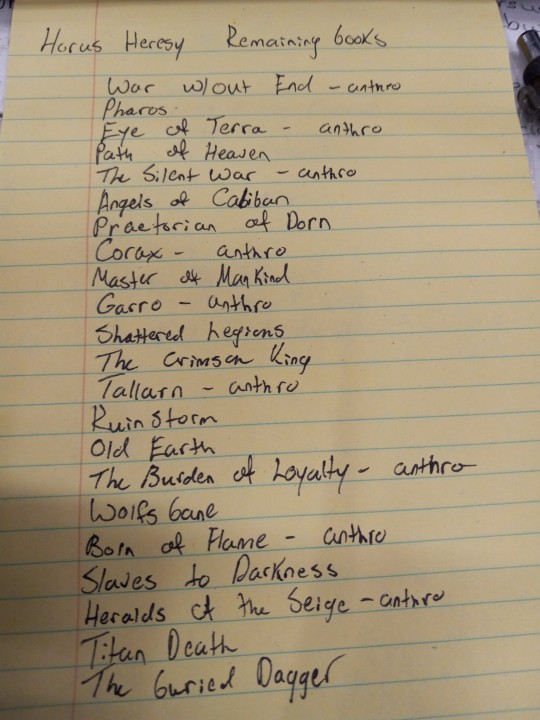 Horus Heresy Remaining books
War w/out End - anthro
Pharos
Eye of Terra - anthro
Path of Heaven
The Silent War - anthro
Angels of Caliban
Praetorian of Dorn
Corax - anthro
Master of Mankind
Garro - anthro
Shattered Legions
The Crimson King
Tallarn - anthro
Ruin Storm
Old Earth
The Burden of Loyalty - anthro
Wolfs bane
Born of Flame - anthro
Slaves to Darkness
Heralds of the Seige - anthro
Titan Death
The Buried Dagger